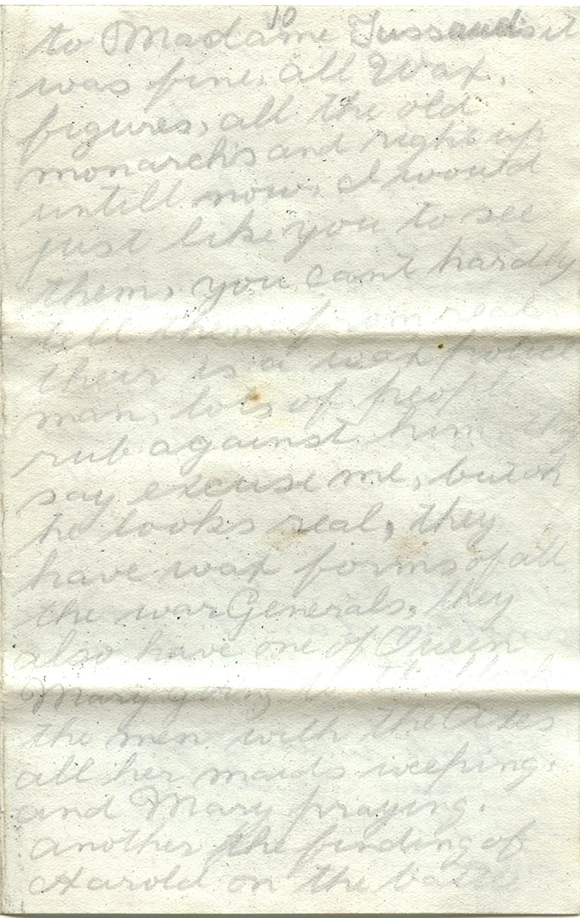 10
to Madame Tussauds it
was fine, all Wax,
figures, all the old
monarchs and right up
untill now, I would
just like you to see
them, you cant hardly
tell them from real
their is a wax police
man, lots of peopl
rub against him
say excuse me,
he looks real, they
have wax forms of all
the war Generals, they
also have one of Queen
Mary going to the block
the men with the Axes
all her maids weeping,
and Mary praying.
another the finding of
Harold on the battle